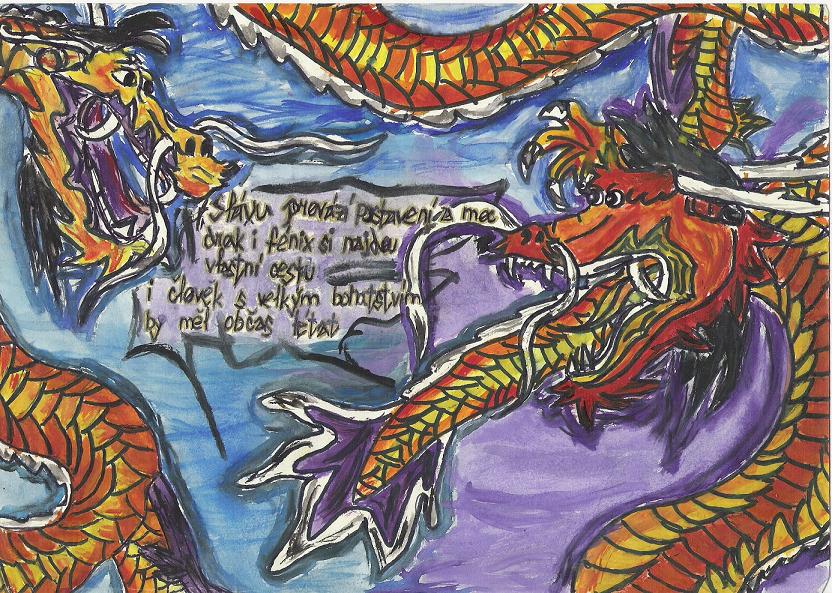 Slávu provází postavení a moc
drak i fénix si najdou
vlastní cestu
i člověk s velkým bohatstvím
by měl občas létat